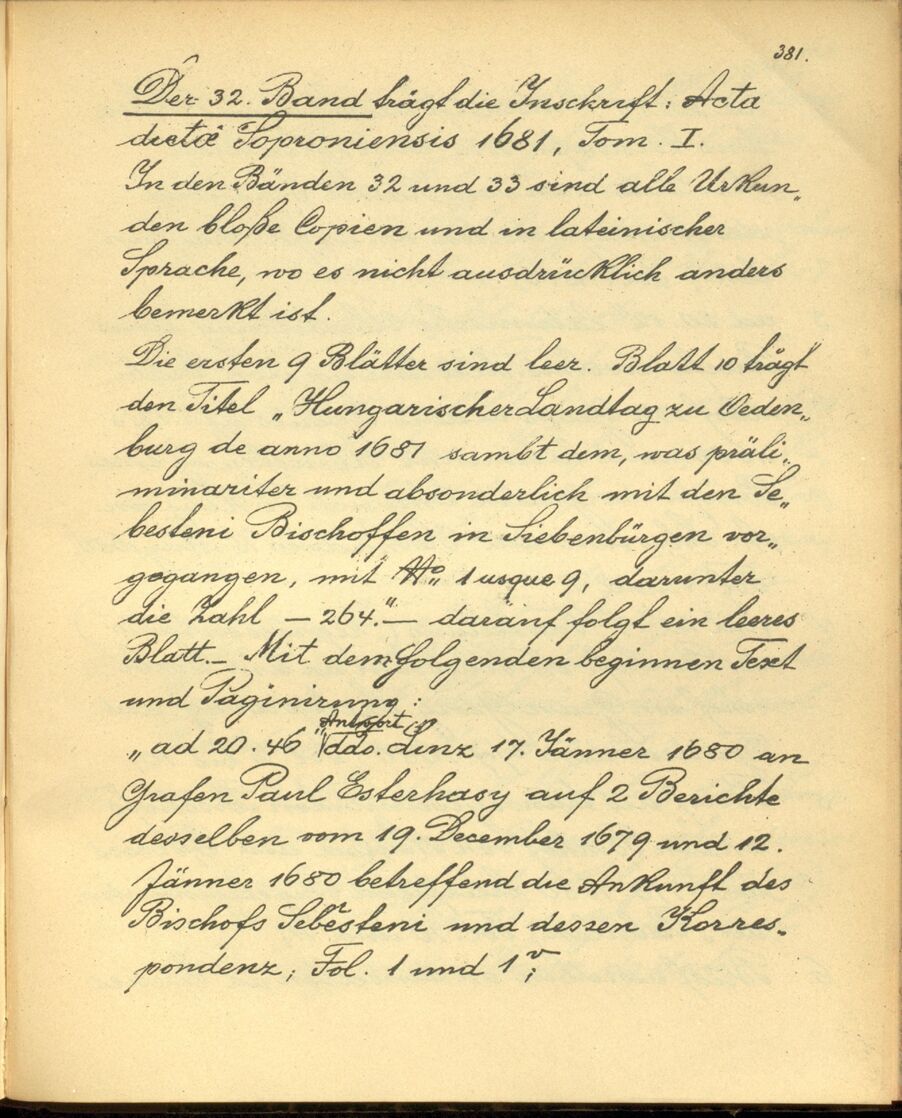 381.
Der 32. Band trägt die Inschrift: Acta
dietæ Soproniensis 1681, Tom. I.
In den Bänden 32 und 33 sind alle Urkun„
den bloße Copien und in lateinischer
Sprache, wo es nicht ausdrücklich anders
bemerkt ist.
Die ersten 9 Blätter sind leer. Blatt 10 trägt
den Titel „Hungarischer Landtag zu Oeden„
burg de anno 1681 sambt dem, was präli„
minariter und absonderlich mit den Se„
besteni Bischoffen in Siebenbürgen vor„
gegangen, mit No. 1 usque 9, darunter
die Zahl — 264." — darauf folgt ein leeres
Blatt. — Mit dem folgenden beginnen Text
und Paginirung:
„ad 20. 46 Antwort ddo. Linz 17. Jänner 1680 an
Grafen Paul Esterhasy auf 2 Berichte
desselben vom 19. December 1679 und 12.
Jänner 1680 betreffend die Ankunft des
Bischofs Sebesteni und dessen Korres„
pondenz; Fol. 1 und 1v;